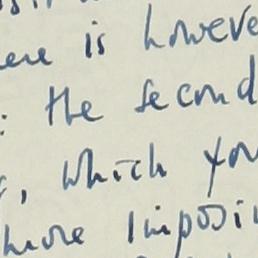 is however
: the second
, which you
more impossi